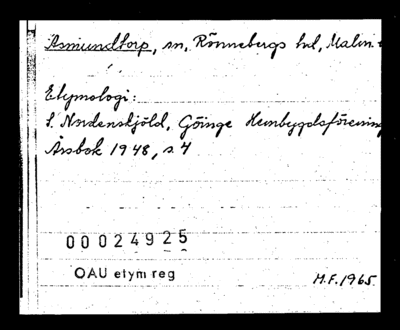 Asmundtorp, sn, Rönnebergs hd, Malm
Etymologi:
S. Nordenskjöld, Göinge Hembygdsförening
Årsbok 1948, s. 4
00024925
OAU etym reg
M.F. 1965.